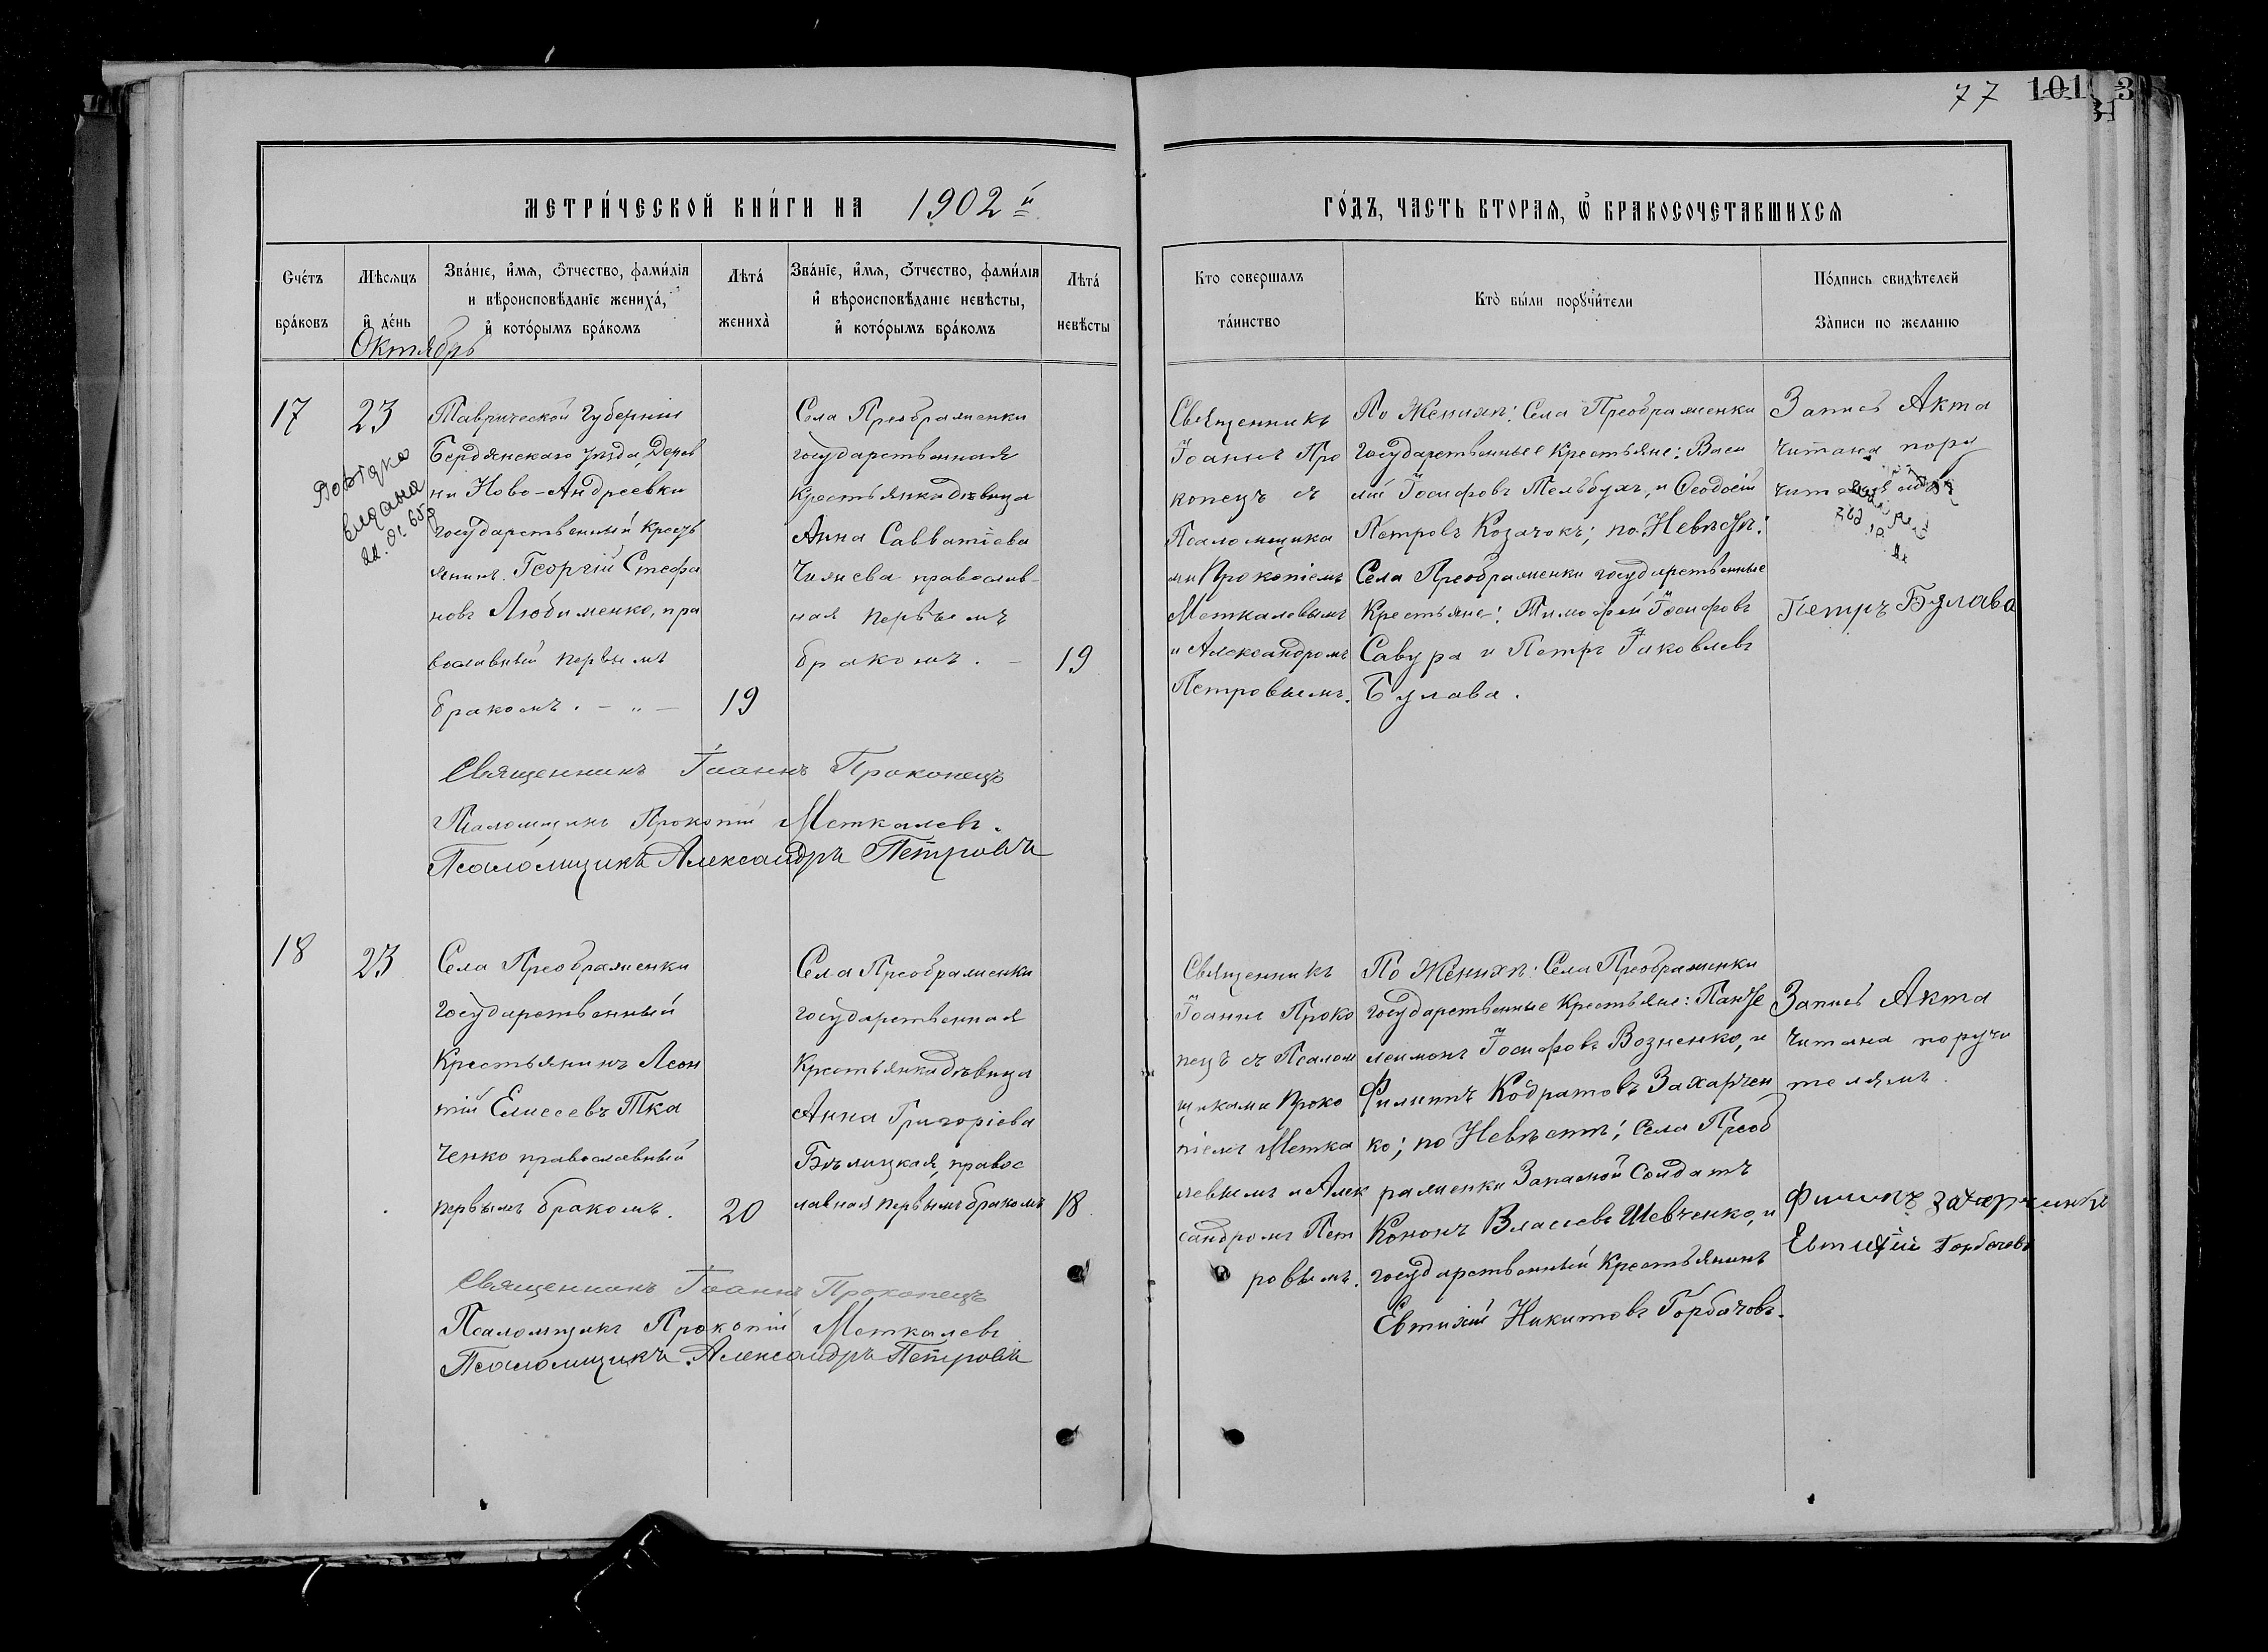 77 101 3
МЕТРИ́ЧЕСКОЙ КНИ́ГИ НА 1902 й
ГО́ДЪ, ЧАСТЬ ВТОРАѦ, Ѡ БРАКОСОЧЕТАВШИХСѦ
Счéтъ брáковъ
Мѣсѧцъ и дéнь
Звáнїе, и́мѧ, ѻтчество, фамѝлїѧ
и вѣроисповѣ́данїе женихá,
и котóрымъ брáкомъ
Лѣтá женихà
Звáнїе, и́мѧ, ѻтчество, фамѝлїѧ
и вѣроисповѣ́данїе невѣ́сты,
и котóрымъ брáкомъ
Лѣтá невѣ́сты
Кто совершалъ тáинство
Ктò бы́ли порꙋчи́тели
Пóдпись свидѣтелей
Зàписи по желанїю
Октябрь
17
23
Довідка
видана
Таврической Губерніи
Бердянскаго уѣзда, Дерев
ни Ново-Андреевки
государственный Кресть
янинъ Георгій Стефа
новъ Любименко, пра
вославный первымъ
бракомъ. — „ —
19
Села Преображенки
государственная
Крестьянка дѣвица
Анна Савватіева
православ-
ная первымъ
бракомъ. —
19
Священникъ
Іоаннъ Про
копецъ съ
Псаломщика
ми Прокопіемъ
Меткалевымъ
и Александромъ
Петровымъ.
По Женихѣ: Села Преображенки
государственные Крестьяне: Васи
лій Іосифовъ Тельбухъ, и Ѳеодосій
Петровъ Козачокъ; по Невѣстѣ:
Села Преображенки государственные
Крестьяне: Тимофей Іосифовъ
Савура и Петръ Іаковлевъ
Булава.
Запись Акта
читана пору
Петръ Булава
Священникъ Іоаннъ Прокопецъ
Псаломщикъ Прокопій Меткалевъ.
Псаломщикъ Александръ Петровъ
18
23
Села Преображенки
государственный
Крестьянинъ Леон
тій Елисеевъ Тка
ченко православный
первымъ бракомъ.
20
Села Преображенки
государственная
Крестьянка дѣвица
Анна Григоріева
Бѣлицкая, правос
лавная первымъ бракомъ
18
Священникъ
Іоаннъ Проко
пецъ съ Псалом
щиками Проко
піемъ Метка
левымъ и Алек
сандромъ Пет
ровымъ.
По Женихѣ: Села Преображенки
государственные Крестьяне: Панте
леимонъ Іосифовъ Возненко, и
Филиппъ Кодратовъ Захарчен
ко; по Невѣстѣ; Села Преоб
раженки Запасной Солдатъ
Кононъ Власіевъ Шевченко, и
государственный Крестьянинъ
Евтихій Никитовъ Горбачовъ.
Запись Акта
читана поручи
телямъ.
Евтихій Горбачевъ
Священникъ Іоаннъ Прокопецъ
Псаломщикъ Прокопій Меткалевъ
Псаломщикъ Александръ Петровъ